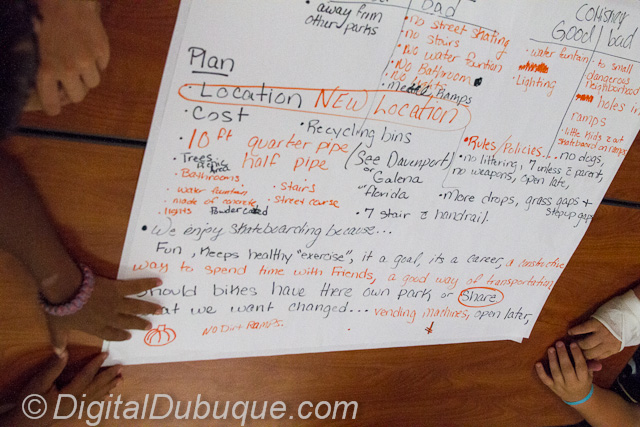 away from
other parks
Bad
no street skating
no stairs
No water funtion
No Bathroom
No
Ramps
Good bad
water funtain
Lighting
to small
dangerous
neighborhood
holes in
ramps
little kids
skateboard on ramps
Plan
Location NEW Location
Cost
Recycling bins
10 ft quarter pipe
half pipe
Trees Picnic Area
Bathrooms
water funtain
made of concrete
lights Powder Coated
Stairs
Street course
(See Davenport)
or
Galena
Florida
7 stair & handrail.
Rules/Policies... no dogs,
no littering, 7 unless c parent,
no weapons, open late,
More drops, grass gaps &
stepup gaps
We enjoy skateboarding because...
Fun, Keeps healthy "exercise", it a goal, its a career, a constructive
way to spend time with friends, a good way of transportation
Should bikes have there own park or Share
what we want changed... vending machines, open later,
No Dirt Ramps.
© DigitalDubuque.com